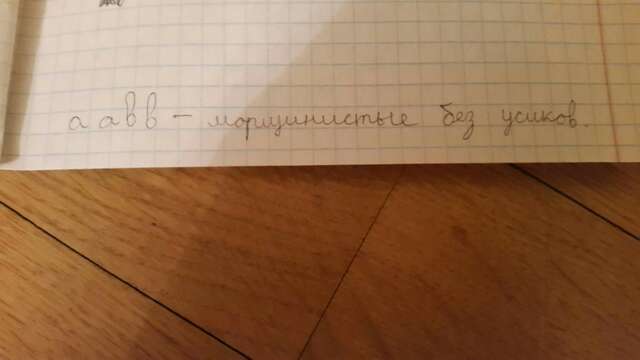 аавв - морщинистые без усиков.